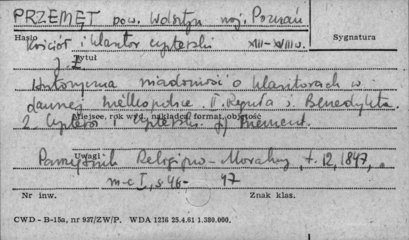 PRZEMĘT pow. Wolsztyn woj. Poznań
Hasło
Sygnatura
Kościół i klasztor cysterski XIII-XVIII w.
Tytuł
Historyczna wiadomość o klasztorach w
dawnej Wielkopolsce. I. Reguła s. Benedykta.
Miejsce, rok wyd., nakładca, format, objętość
2. Cystersi i Cysterki. Przement.
Uwagi
Pamiętnik Religijno-Moralny, t. 12, 1847,
m-c I, s. 46- 47
Nr inw.
Znak klas.
CWD - B-15a, nr 937/ZW/P. WDA 1216 25.4.61 1.380.000.